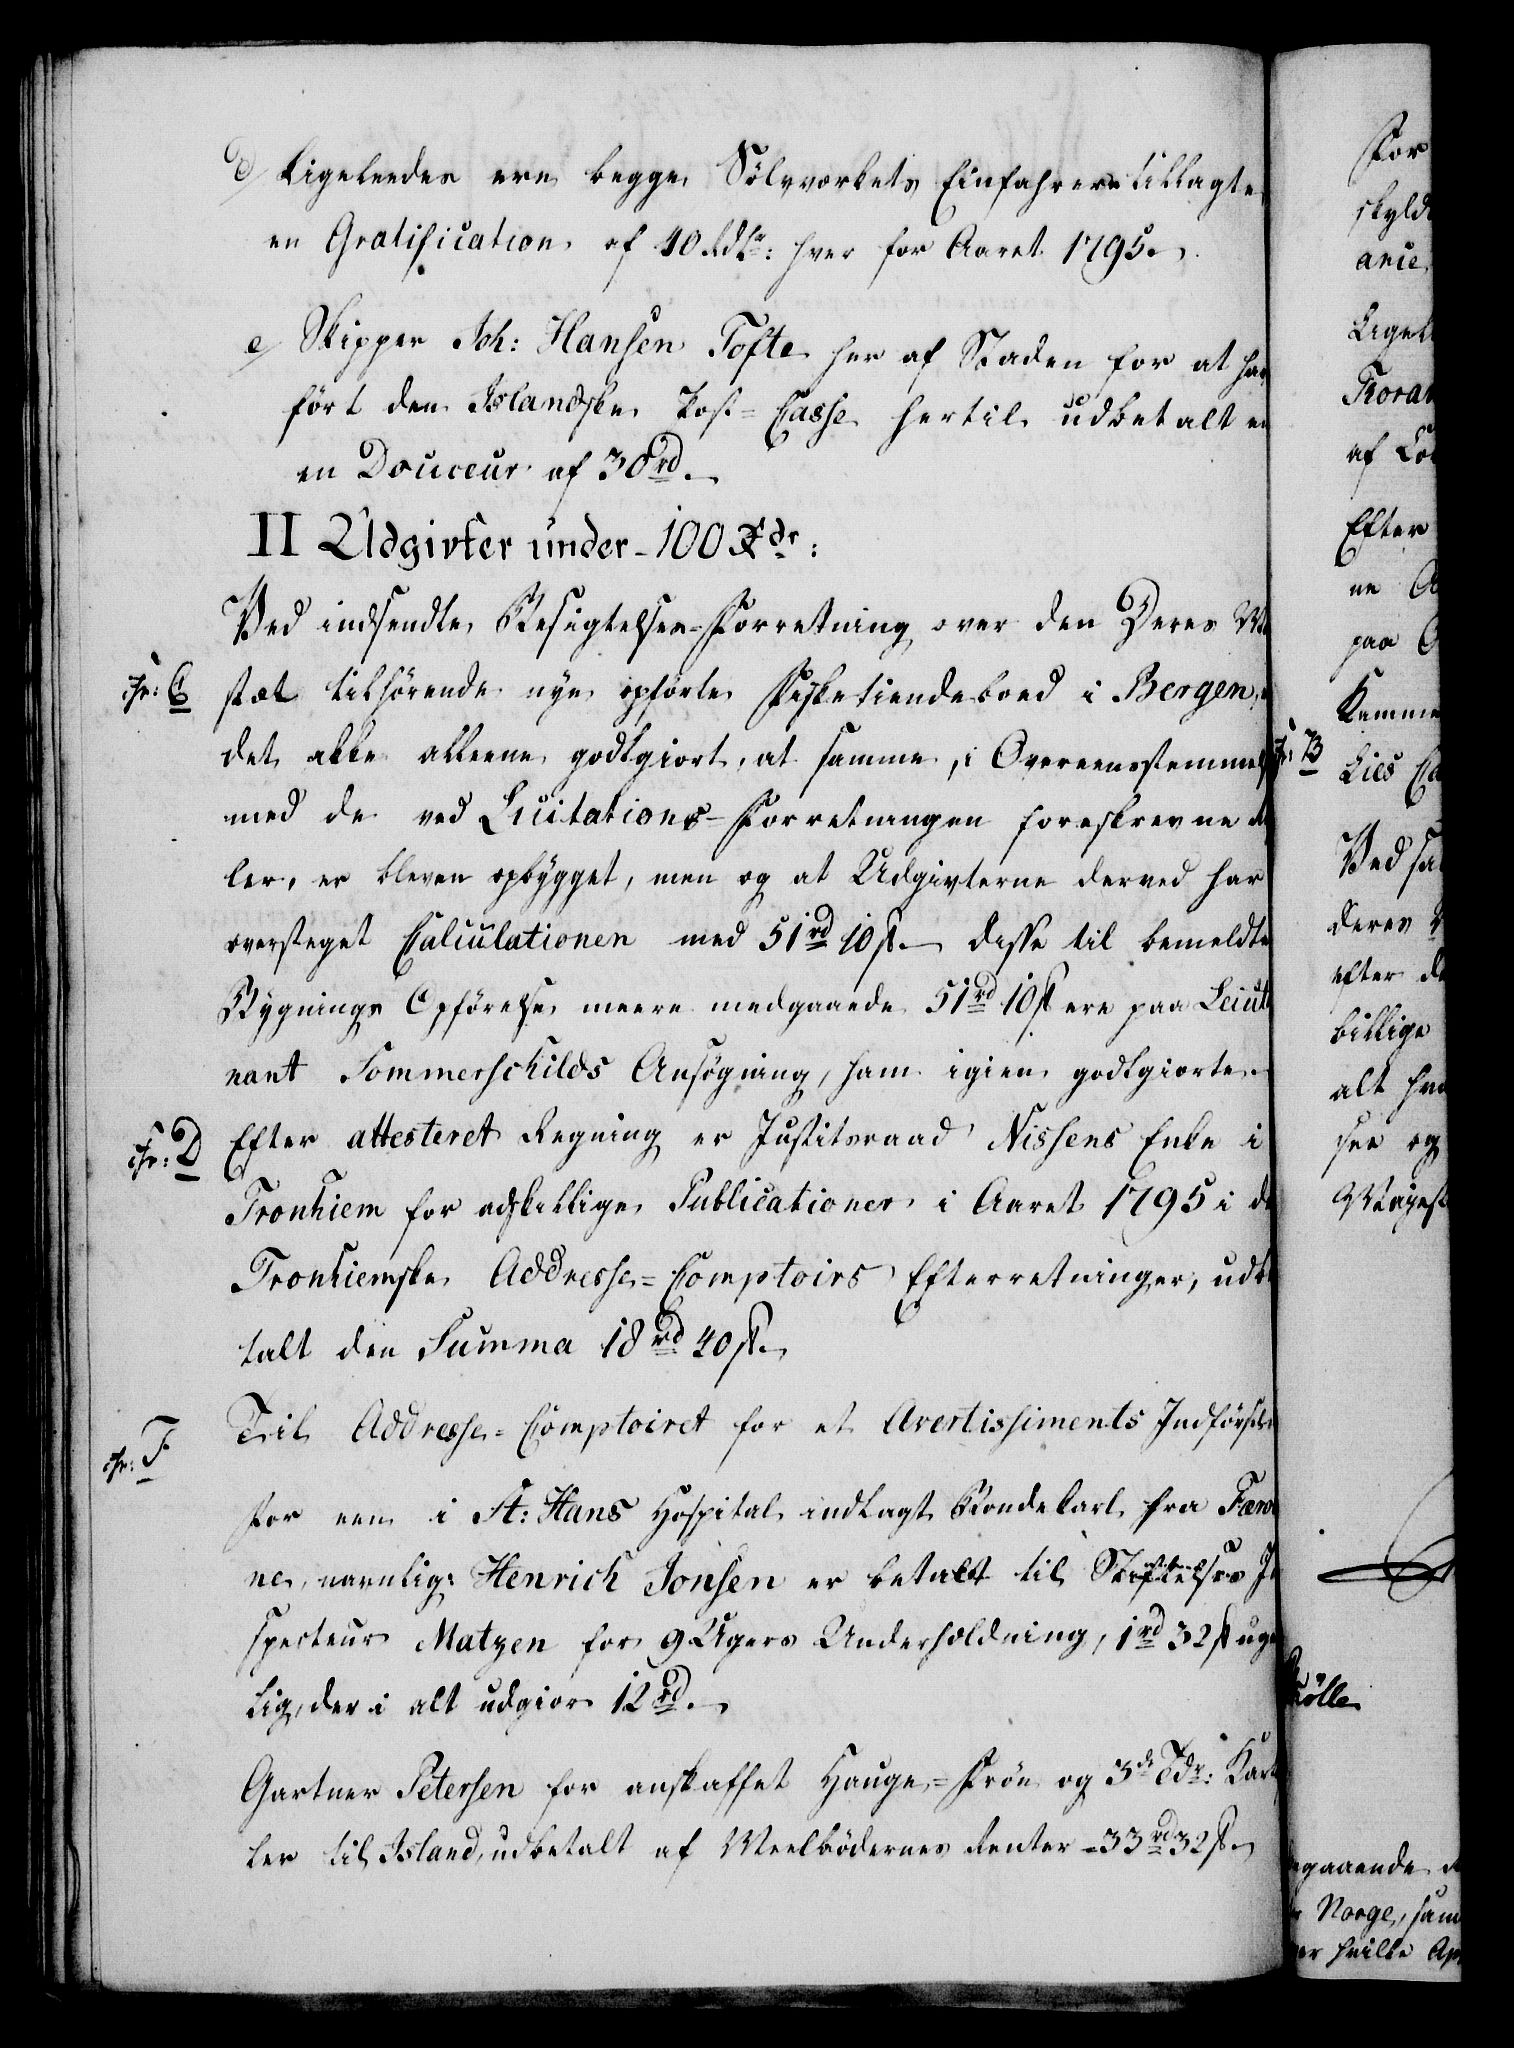 d/ Ligeleedes ere begge Sølvværkets Einfahrere tillagte
en Gratification af 40 Rdlr: hver for Aaret 1795.
e/ Skipper Joh: Hansen Tofte her af Staden for at hav
ført den Islandske Post-Casse hertil udbetalt
en Douceur af 30 rd.
II Udgivter under 100 Rdr:
Ved indsendte Besigtelses-Forretning over den Deres Ma
Nr: C stæt tilhørende nye opførte Fisketiendeboed i Bergen,
det ikke alleene godtgiort, at samme, i Overeensstemmels
med de ved Licitations-Forretningen foreskrevne
ler, er bleven opbygget, men og at Udgivterne derved har
oversteget Calculationen med 51 rd 10 ß. disse til bemeldte
Bygnings Opførelse meere medgaaede 51 rd 10 ß ere paa Leiut
nant Sommerschilds Ansøgning, ham igien godtgiorte.
Nr: D Efter attesteret Regning er Justitsraad Nissens Enke i
Tronhiem for adskillige Publicationer i Aaret 1795 i de
Tronhiemske Addresse-Comptoirs Efterretninger, udbe
talt den Summa 18 rd 40 ß.
Nr: F Til Addresse-Comptoiret for et Avertissements Indførsel
For een i St: Hans Hospital indlagt Bondekarl fra Færø
ne, navnlig: Henrich Jonsen er betalt til Stiftelses In
specteur Matzen for 9 Ugers Underholdning, 1 rd 32 ß uge
lig, der i alt udgiør 12 rd.
Gartner Petersen for anskaffet Hauge-Frøe og 3de Tdr: Kart
ler til Island, udbetalt af Meelbødernes Renter - 33 rd 32 ß.
For
skyld
ance
Ligel
af
Efter
ne
paa
Kamme
Nr: B
Lies
Ved sa
deres
efter de
billige
alt hva
see og
Mayest
Mölle
egaaende
Norge, sam
er hvilke